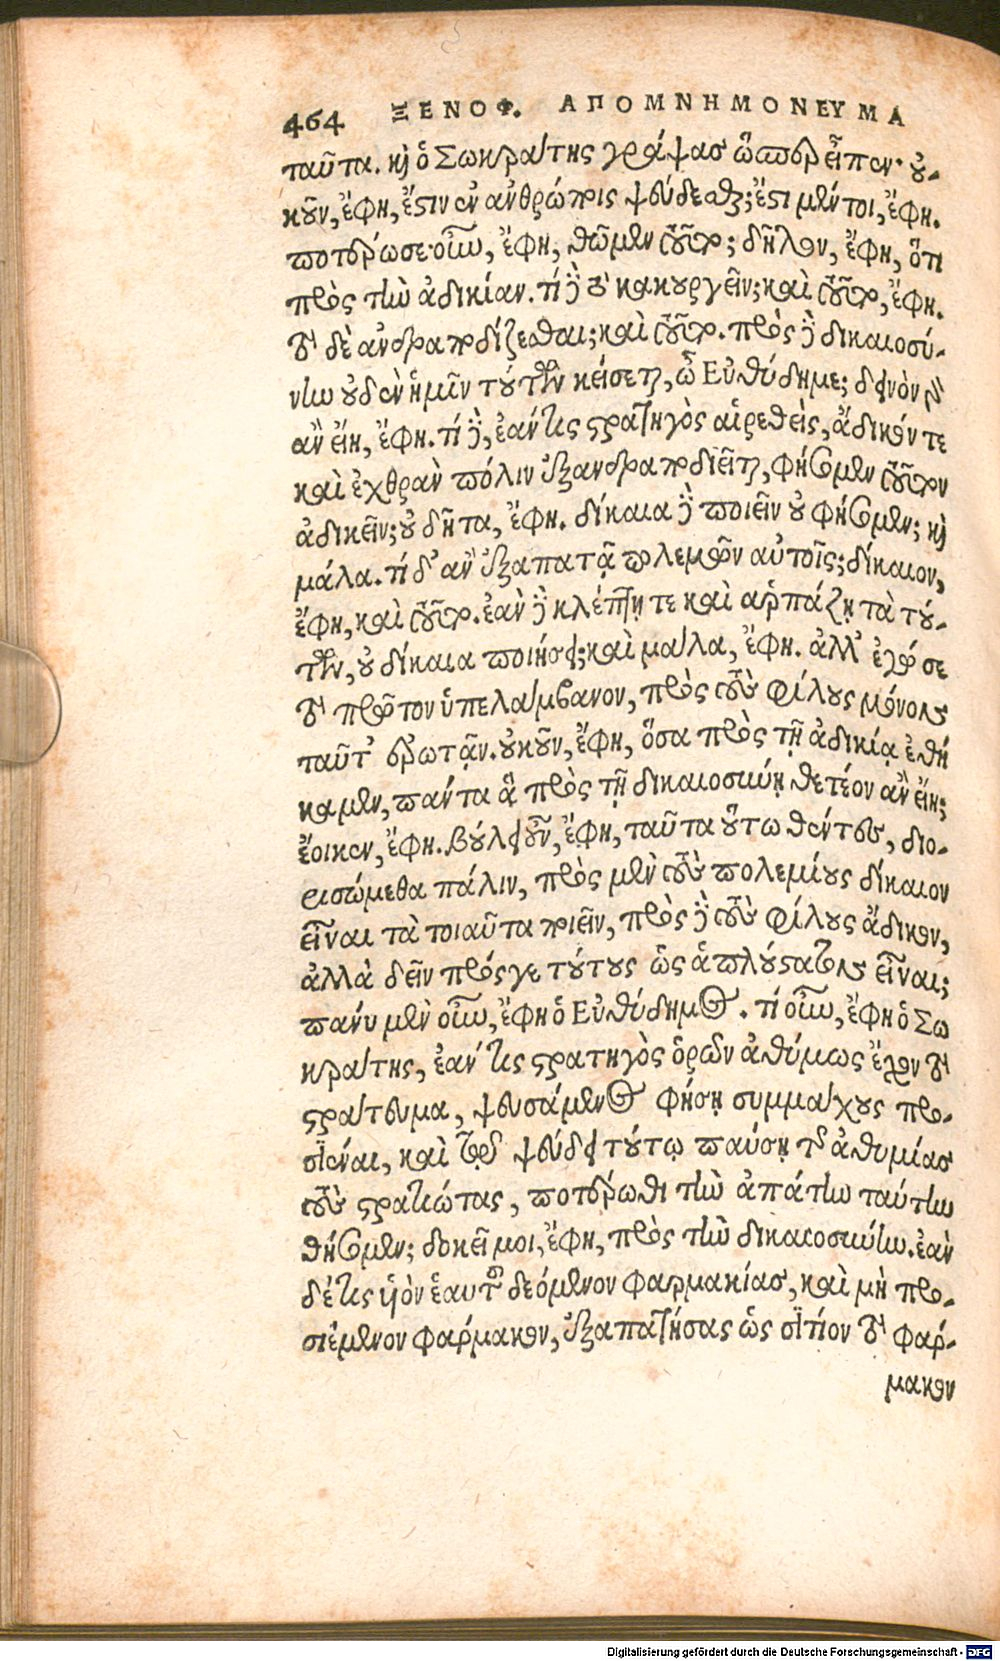 464 ΞΕΝΟΦ. ΑΠΟΜΝΗΜΟΝΕΥΜΑ
ταῦτα. καὶ ὁ Σωκράτης γράψας ὥσπερ εἶπεν· οὐ-
κοῦν, ἔφη, ἔστιν ἐν ἀνθρώποις ψεύδεσθαι; ἔστι μέντοι, ἔφη.
ποτέρωσε οὖν, ἔφη, θῶμεν τοῦτο; δῆλον, ἔφη, ὅτι
πρὸς τὴν ἀδικίαν. τί δὲ τὸ κακουργεῖν; καὶ τοῦτο, ἔφη.
τὸ δὲ ἀνδραποδίζεσθαι; καὶ τοῦτο. πρὸς δὲ δικαιοσύ-
νην οὐδὲν ἡμῖν τούτων κείσεται, ὦ Εὐθύδημε; δεινὸν γὰρ
ἂν εἴη, ἔφη. τί δὲ, ἐάν τις στρατηγὸς αἱρεθεὶς, ἄδικόν τε
καὶ ἐχθρὰν πόλιν ἐξανδραποδιεῖται, φήσομεν τοῦτον
ἀδικεῖν; οὐ δῆτα, ἔφη. δίκαια δὲ ποιεῖν οὐ φήσομεν; καὶ
μάλα. τί δ' ἂν ἐξαπατᾷ πολεμῶν αὐτοῖς; δίκαιον,
ἔφη, καὶ τοῦτο. ἐὰν δὲ κλέπτῃ τε καὶ ἁρπάζῃ τὰ τού-
των, οὐ δίκαια ποιήσει; καὶ μάλα, ἔφη. ἀλλ' ἐγώ σε
τὸ πρῶτον ὑπελάμβανον, πρὸς τοὺς φίλους μόνους
ταῦτ' ἐρωτᾷν. οὐκοῦν, ἔφη, ὅσα πρὸς τῇ ἀδικίᾳ ἐθή
καμεν, πάντα ἃ πρὸς τῇ δικαιοσύνῃ θετέον ἂν εἴη;
ἔοικεν, ἔφη. βούλει οὖν, ἔφη, ταῦτα οὕτω θέντες, διο-
ρισώμεθα πάλιν, πρὸς μὲν τοὺς πολεμίους δίκαιον
εἶναι τὰ τοιαῦτα ποιεῖν, πρὸς δὲ τοὺς φίλους ἄδικον,
ἀλλὰ δεῖν πρός γε τούτους ὡς ἁπλούστατους εἶναι;
πάνυ μὲν οὖν, ἔφη ὁ Εὐθύδημος. τί οὖν, ἔφη ὁ Σω
κράτης, ἐάν τις στρατηγὸς ὁρῶν ἀθύμως ἔχον τὸ
στράτευμα, ψευσάμενος φήσῃ συμμάχους προ-
σϊέναι, καὶ τῷ ψεύδει τούτῳ παύσῃ τῆς ἀθυμίας
τοὺς στρατιώτας, ποτέρωθι τὴν ἀπάτην ταύτην
θήσομεν; δοκεῖ μοι, ἔφη, πρὸς τὴν δικαιοσύνην. ἐὰν
δέ τις υἱὸν ἑαυτοῦ δεόμενον φαρμακίας, καὶ μὴ προ-
σιέμενον φάρμακον, ἐξαπατήσας ὡς σϊτίον τὸ φάρ-
μακον
Digitalisierung gefördert durch die Deutsche Forschungsgemeinschaft - DFG